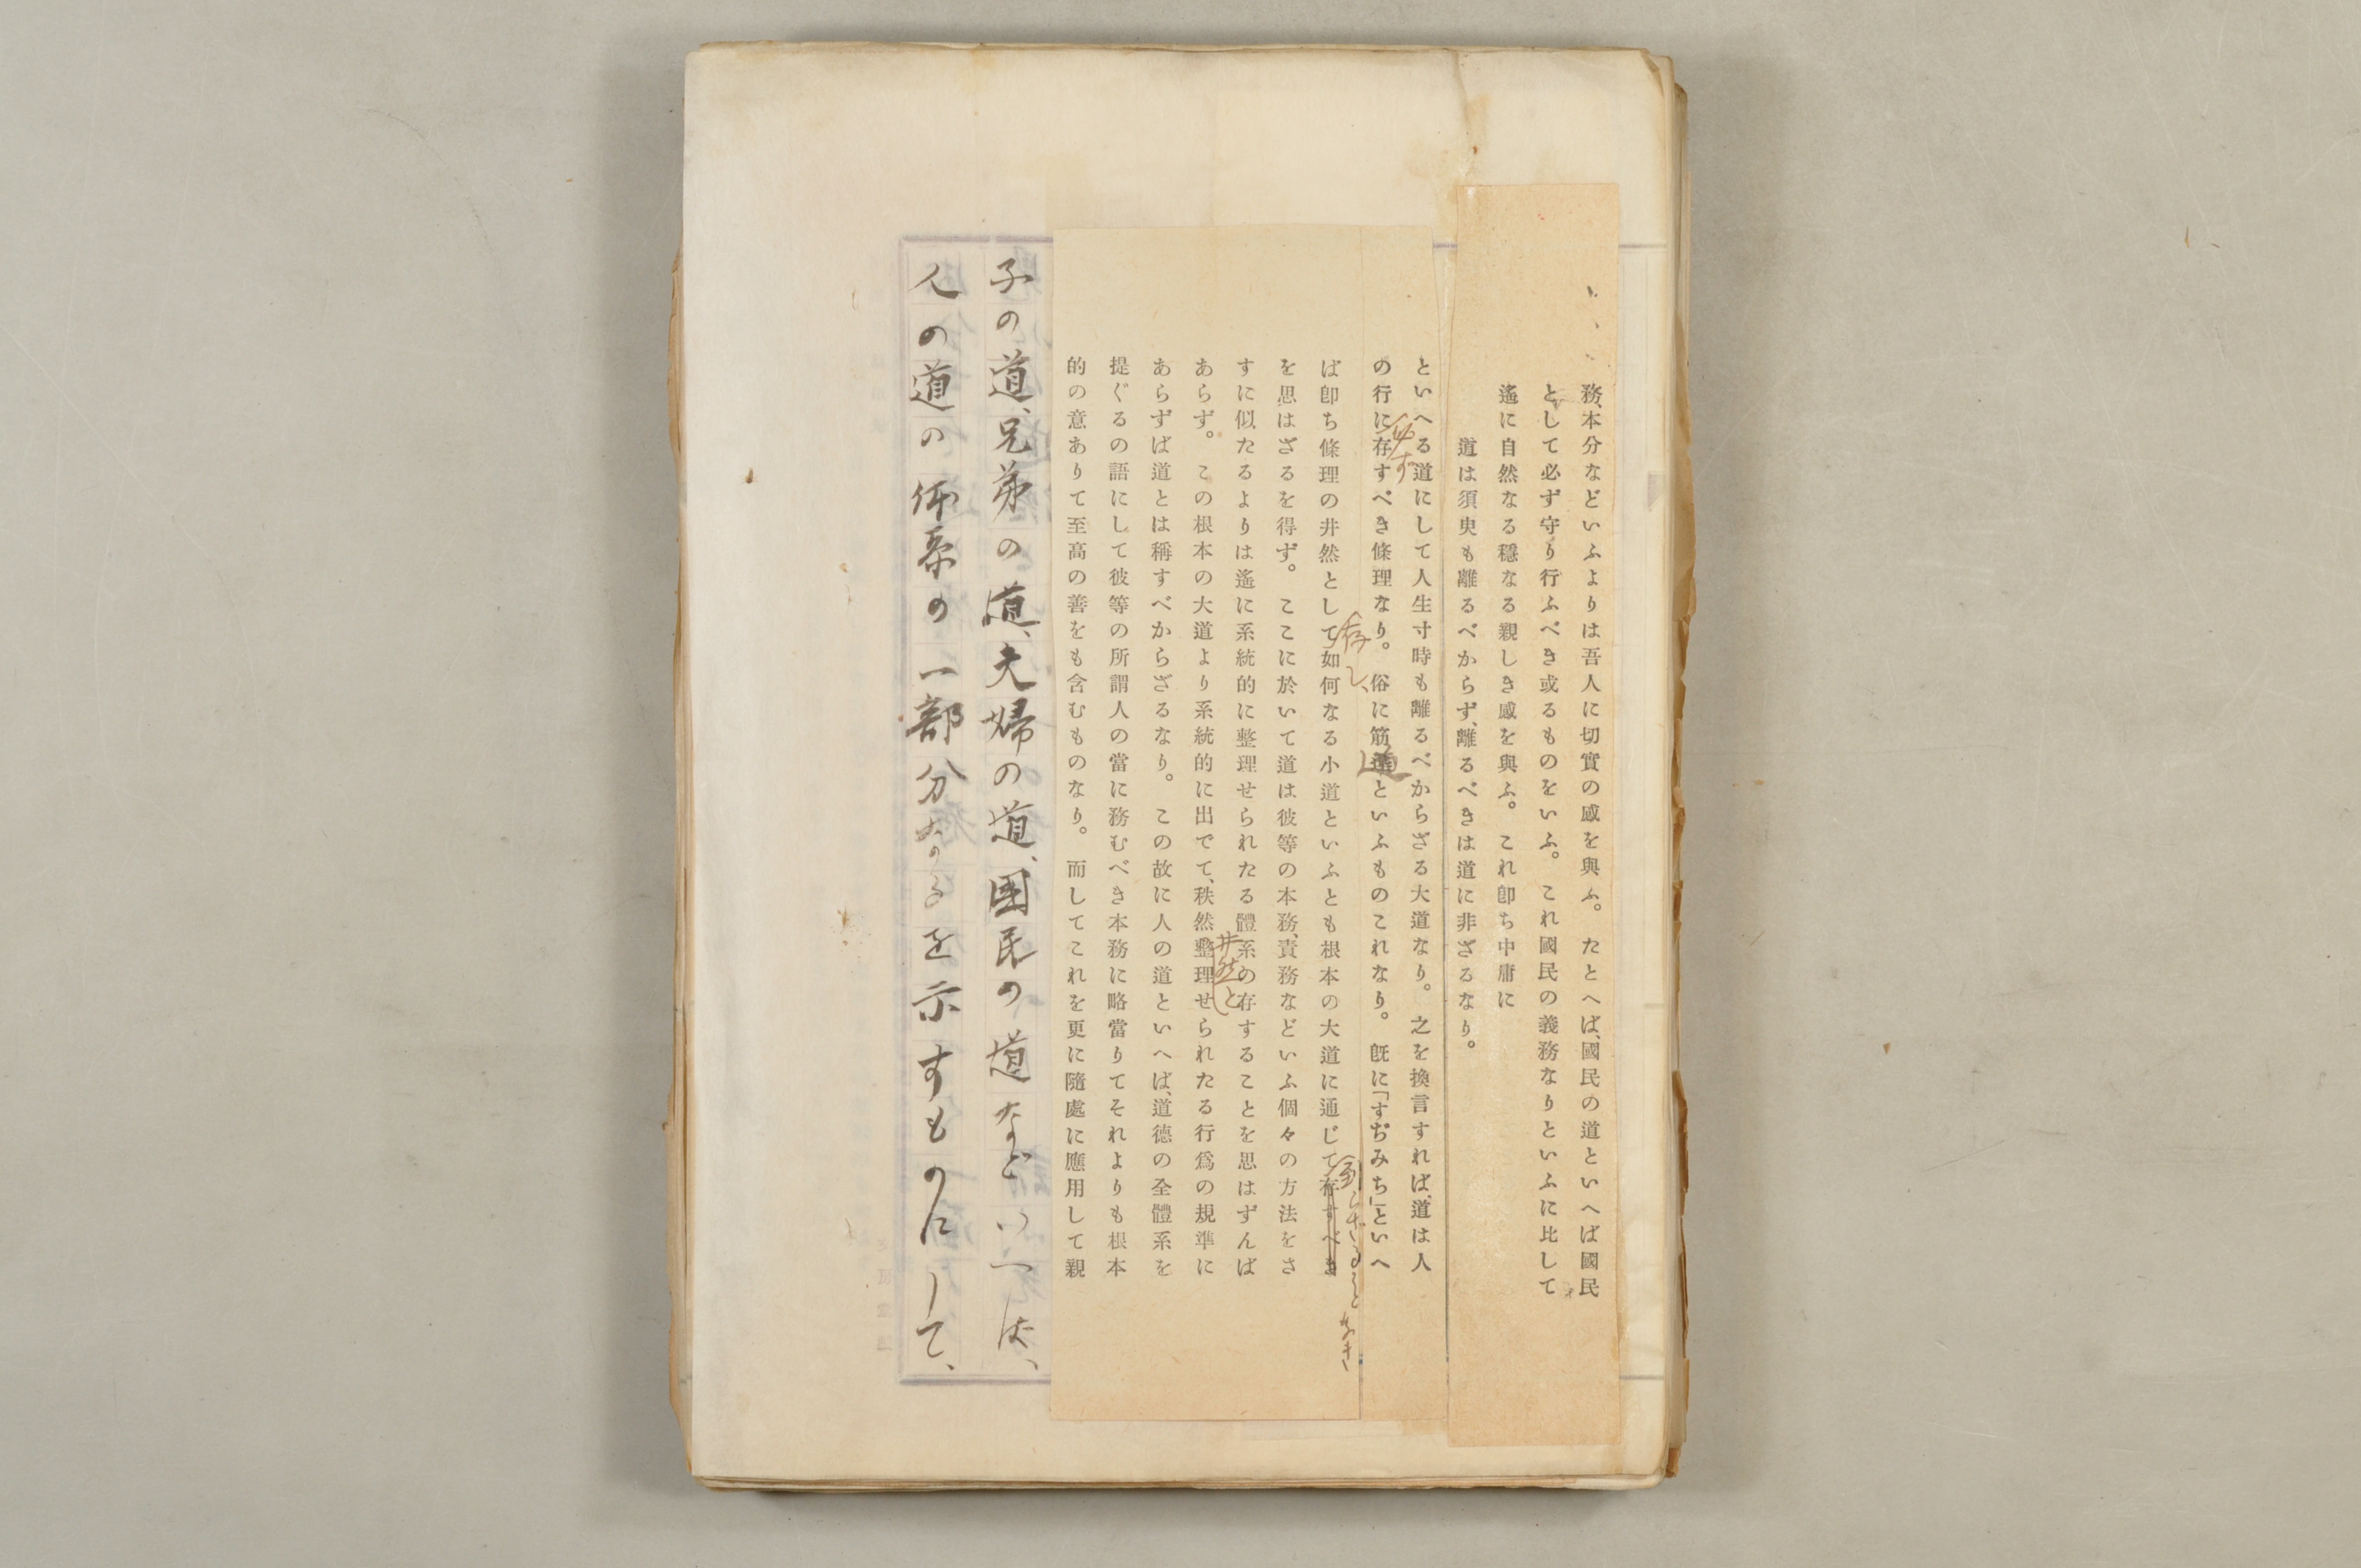 務、本分などいふよりは吾人に切實の感を與ふ。たとへば、國民の道といへば國民
として必ず守り行ふべき或るものをいふ。これ國民の義務なりといふに比して
遙に自然なる穩なる親しき感を與ふ。これ卽ち中庸に
道は須臾も離るべからず、離るべきは道に非ざるなり。
といへる道にして人生寸時も離るべからざる大道なり。之を換言すれば、道は人
必ず
の行に存すべき條理なり。俗に筋道といふものこれなり。旣に「すぢみち」といへ
存し、
ば卽ち條理の井然として如何なる小道といふとも根本の大道に通じて存すべき
到らざることなき
を思はざるを得ず。ここに於いて道は彼等の本務、責務などいふ個々の方法をさ
すに似たるよりは遙に系統的に整理せられたる體系の存することを思はずんば
井然と
あらず。この根本の大道より系統的に出でて、秩然整理せられたる行爲の規準に
あらずば道とは稱すべからざるなり。この故に人の道といへば、道德の全體系を
提ぐるの語にして彼等の所謂人の當に務むべき本務に略當りてそれよりも根本
的の意ありて至高の善をも含むものなり。而してこれを更に隨處に應用して親
子の道、兄弟の道、夫婦の道、国民の道などいへば、
人の道の体系の一部分なるを示すものにして、